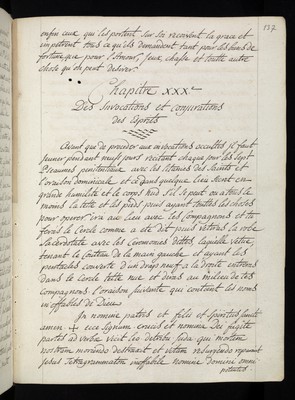 137
enfin aux qui les portent sur soi recoivent la grace et
impetrent tous ce qu'ils demandent tant pour les biens de
fortune que pour l'Amour, jeux, chasse et toutte autre
chose qu'on peut desirer.
Chapitre XXXe
Des Invocations et conjurations
des Esprits
Avant que de proceder aux invocations occultes il faut
jeuner pendant neuf jours recitant chaque jour les Sept
Pseaumes penitentiaux avec les Litanies des Saints et
l'oraison dominicale et à quel quelque lieu Secret en
grande humilité et le corps nud s'il se peut ou au moins
la tête et les pieds puis ayant toutes les choses
pour operer ira au lieu avec les Compagnons et
fera le Cercle comme a ete dit puis vetira la robe
Sacerdotale avec les Ceremonies dittes, laquelle vetue,
tenant le Couteau de la main gauche et ayant les
pentacles couverts d'un drap neuf a la droite entrera
dans le cercle tete nue et dira au milieu de ses
compagnons l'oraison suivante qui contient les noms
ineffables de Dieu
In nomine patris et filii et Spiritus Sancti
amen + ecce Signum crucis et nomine Dei fugite
partes adversae vicit leo de tribu juda qui mortem
nostram moriendo destruxit et vitam resurgendo reparavit
Jesus Tetragrammaton ineffabile nomine domini omni
potentis